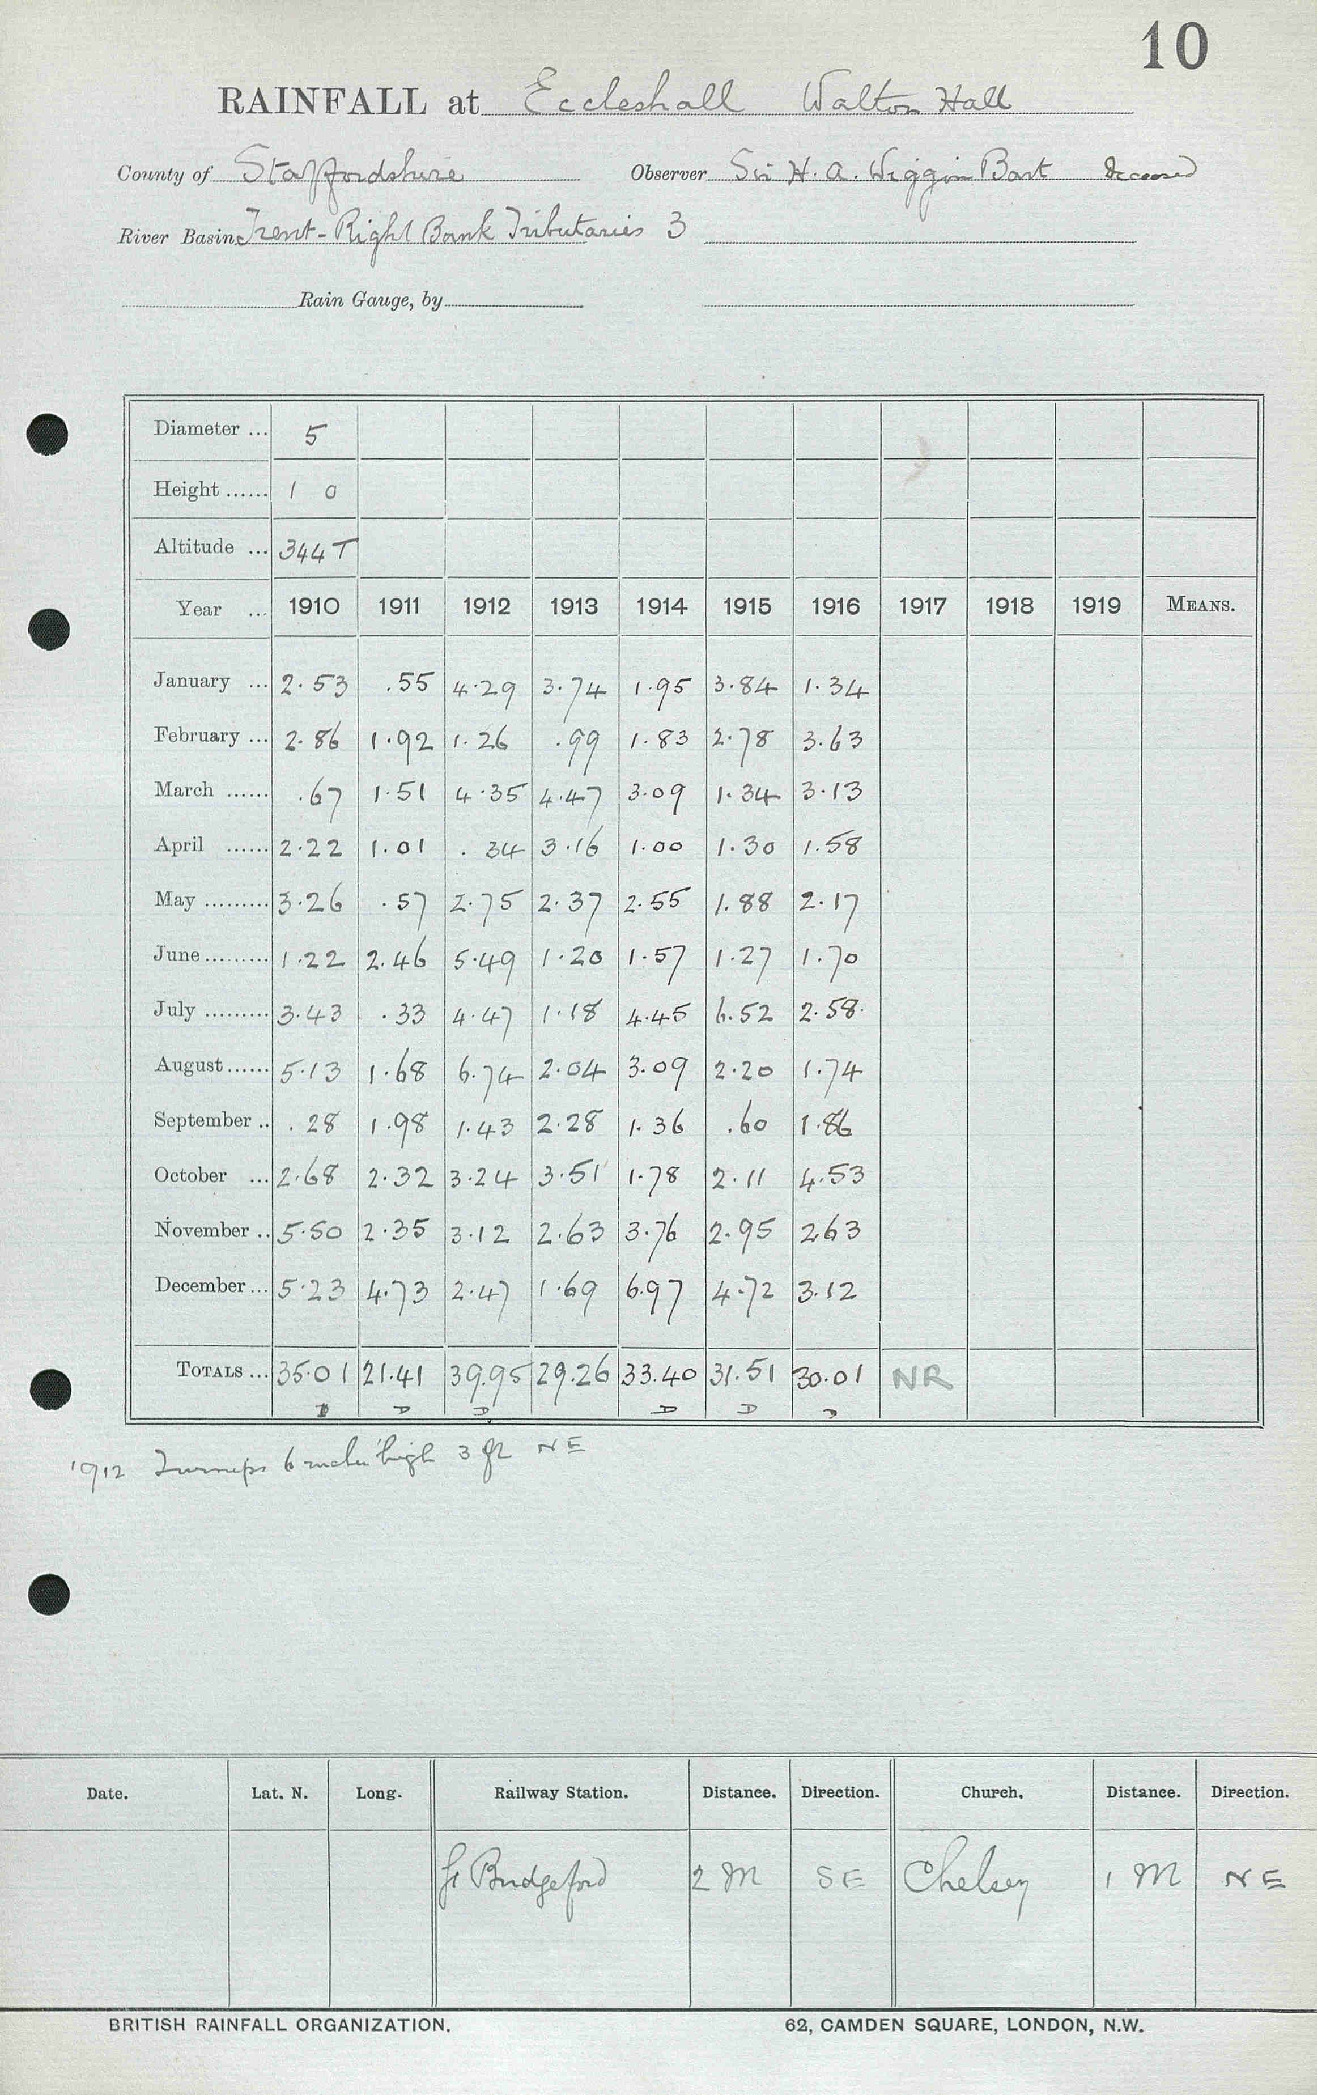 10
RAINFALL at Eccleshall Walton Hall
County of Staffordshire Observer Sir H. A. Wiggin Bart deceased
River Basin Trent - Right Bank Tributaries 3
Rain Gauge, by
Diameter ... 5
Height ...... 1 0
Altitude ... 344 T
Year ... 1910 1911 1912 1913 1914 1915 1916 1917 1918 1919 MEANS.
January ... 2.53 .55 4.29 3.74 1.95 3.84 1.34
February ... 2.86 1.92 1.26 .99 1.83 2.78 3.63
March ...... .67 1.51 4.35 4.47 3.09 1.34 3.13
April ...... 2.22 1.01 .34 3.16 1.00 1.30 1.58
May ......... 3.26 .57 2.75 2.37 2.55 1.88 2.17
June ......... 1.22 2.46 5.49 1.20 1.57 1.27 1.70
July ......... 3.43 .33 4.47 1.18 4.45 6.52 2.58
August ...... 5.13 1.68 6.74 2.04 3.09 2.20 1.74
September .. .28 1.98 1.43 2.28 1.36 .60 1.86
October ... 2.68 2.32 3.24 3.51 1.78 2.11 4.53
November .. 5.50 2.35 3.12 2.63 3.76 2.95 2.63
December ... 5.23 4.73 2.47 1.69 6.97 4.72 3.12
TOTALS ... 35.01 21.41 39.95 29.26 33.40 31.51 30.01 NR
D D D D D D
1912 Turnips 6 inches high 3 ft NE
Date. Lat. N. Long. Railway Station. Distance. Direction. Church. Distance. Direction.
Gt Bridgeford 2 M SE Chelsey 1 M NE
BRITISH RAINFALL ORGANIZATION. 62, CAMDEN SQUARE, LONDON, N.W.